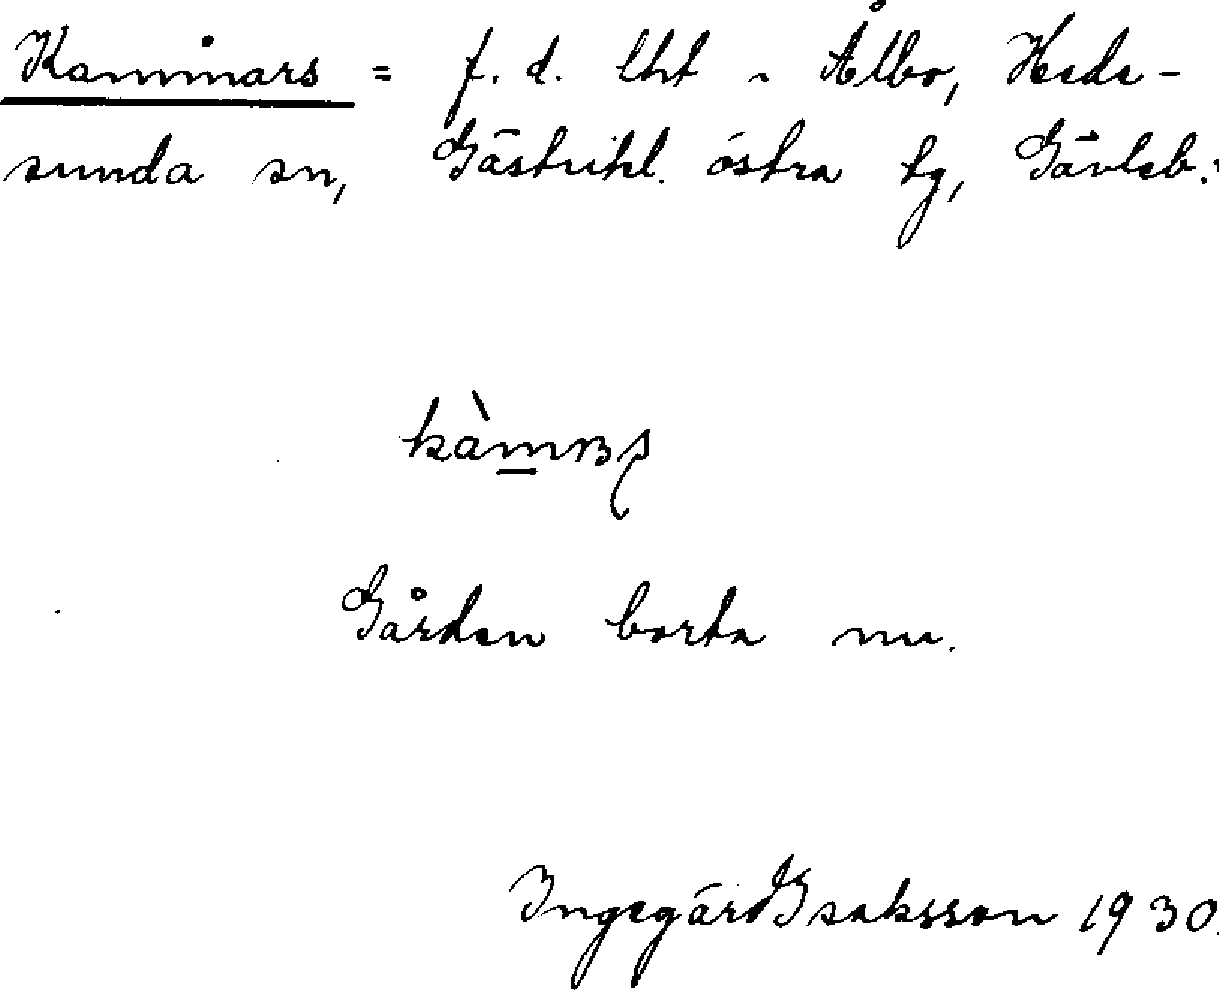 Kammars = f. d. lht i Ålbo, Hede-
sunda sn, Gästrikl. östra tg, Gävleb.
Gården borta nu.
Ingegärd Isaksson 1930.